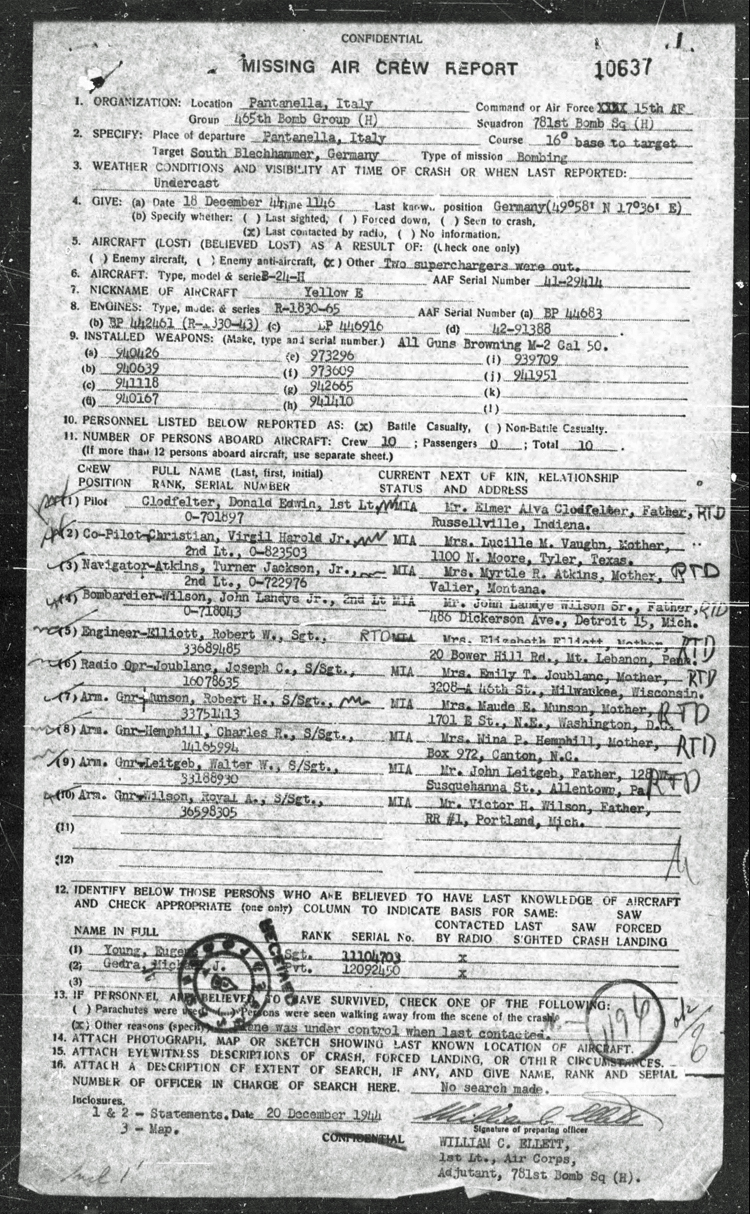 CONFIDENTIAL
MISSING AIR CREW REPORT
10637
1. ORGANIZATION: Location Pantanella, Italy Command or Air Force XXXX 15th AF
Group 465th Bomb Group (H) Squadron 781st Bomb Sq (H)
2. SPECIFY: Place of departure Pantanella, Italy Course 16° base to target
Target South Blechhammer, Germany Type of mission Bombing
3. WEATHER CONDITIONS AND VISIBILITY AT TIME OF CRASH OR WHEN LAST REPORTED:
Undercast
4. GIVE: (a) Date 18 December 44 Time 1146 Last known position Germany(49°58' N 17°36' E)
(b) Specify whether: ( ) Last sighted, ( ) Forced down, ( ) Seen to crash,
(x) Last contacted by radio, ( ) No information.
5. AIRCRAFT (LOST) (BELIEVED LOST) AS A RESULT OF: (Check one only)
( ) Enemy aircraft, ( ) Enemy anti-aircraft, (x) Other Two superchargers were out.
6. AIRCRAFT: Type, model & series B-24-H AAF Serial Number 41-29414
7. NICKNAME OF AIRCRAFT Yellow E
8. ENGINES: Type, model & series R-1830-65 AAF Serial Number (a) BP 44683
(b) BP 442461 (R-1830-43) (c) BP 446916 (d) 42-91388
9. INSTALLED WEAPONS: (Make, type and serial number) All Guns Browning M-2 Cal 50.
(a) 940426 (e) 973296 (i) 939709
(b) 940639 (f) 973609 (j) 941951
(c) 941118 (g) 942665 (k)
(d) 940167 (h) 941410 (l)
10. PERSONNEL LISTED BELOW REPORTED AS: (x) Battle Casualty, ( ) Non-Battle Casualty.
11. NUMBER OF PERSONS ABOARD AIRCRAFT: Crew 10 ; Passengers 0 ; Total 10 .
(If more than 12 persons aboard aircraft, use separate sheet.)
CREW FULL NAME (Last, first, initial) CURRENT NEXT OF KIN, RELATIONSHIP
POSITION RANK, SERIAL NUMBER STATUS AND ADDRESS
(1) Pilot Clodfelter, Donald Edwin, 1st Lt, MIA Mr. Elmer Alva Clodfelter, Father, RTD
O-701897 Russellville, Indiana.
(2) Co-Pilot-Christian, Virgil Harold Jr., MIA Mrs. Lucille M. Vaughn, Mother,
2nd Lt., O-823503 1100 N. Moore, Tyler, Texas.
(3) Navigator-Atkins, Turner Jackson, Jr., MIA Mrs. Myrtle R. Atkins, Mother, RTD
2nd Lt., O-722976 Valier, Montana.
(4) Bombardier-Wilson, John Landye Jr., 2nd Lt MIA Mr. John Landye Wilson Sr., Father, RTD
O-718043 486 Dickerson Ave., Detroit 15, Mich.
(5) Engineer-Elliott, Robert W., Sgt., RTD MIA Mrs. Elizabeth Elliott, Mother, RTD
33689485 20 Bower Hill Rd., Mt. Lebanon, Penn.
(6) Radio Opr-Joublanc, Joseph C., S/Sgt., MIA Mrs. Emily T. Joublanc, Mother, RTD
16078635 3208-A 46th St., Milwaukee, Wisconsin.
(7) Arm. Gnr-Munson, Robert H., S/Sgt., MIA Mrs. Maude E. Munson, Mother, RTD
33751413 1701 E St., N.E., Washington, D.C.
(8) Arm. Gnr-Hemphill, Charles R., S/Sgt., MIA Mrs. Nina P. Hemphill, Mother, RTD
14165994 Box 972, Canton, N.C.
(9) Arm. Gnr-Leitgeb, Walter W., S/Sgt., MIA Mr. John Leitgeb, Father, 128 W. RTD
33188930 Susquehanna St., Allentown, Pa.
(10) Arm. Gnr-Wilson, Royal A., S/Sgt., MIA Mr. Victor H. Wilson, Father,
36598305 RR #1, Portland, Mich.
(11)
(12)
12. IDENTIFY BELOW THOSE PERSONS WHO ARE BELIEVED TO HAVE LAST KNOWLEDGE OF AIRCRAFT
AND CHECK APPROPRIATE (one only) COLUMN TO INDICATE BASIS FOR SAME: SAW
CONTACTED LAST SAW FORCED
NAME IN FULL RANK SERIAL No. BY RADIO SIGHTED CRASH LANDING
(1) Young, Sgt. 11104703 x
(2) Gedra, J. Pvt. 12092450 x
(3)
13. IF PERSONNEL ARE BELIEVED TO HAVE SURVIVED, CHECK ONE OF THE FOLLOWING:
( ) Parachutes were used ( ) Persons were seen walking away from the scene of the crash
(x) Other reasons (specify) Plane was under control when last contacted.
RECEIVED
1196
14. ATTACH PHOTOGRAPH, MAP OR SKETCH SHOWING LAST KNOWN LOCATION OF AIRCRAFT.
15. ATTACH EYEWITNESS DESCRIPTIONS OF CRASH, FORCED LANDING, OR OTHER CIRCUMSTANCES.
16. ATTACH A DESCRIPTION OF EXTENT OF SEARCH, IF ANY, AND GIVE NAME, RANK AND SERIAL
NUMBER OF OFFICER IN CHARGE OF SEARCH HERE. No search made.
Inclosures.
1 & 2 - Statements. Date 20 December 1944 William C. Ellett
3 - Map. Signature of preparing officer
CONFIDENTIAL WILLIAM C. ELLETT,
1st Lt., Air Corps,
Adjutant, 781st Bomb Sq (H).
Incl 1